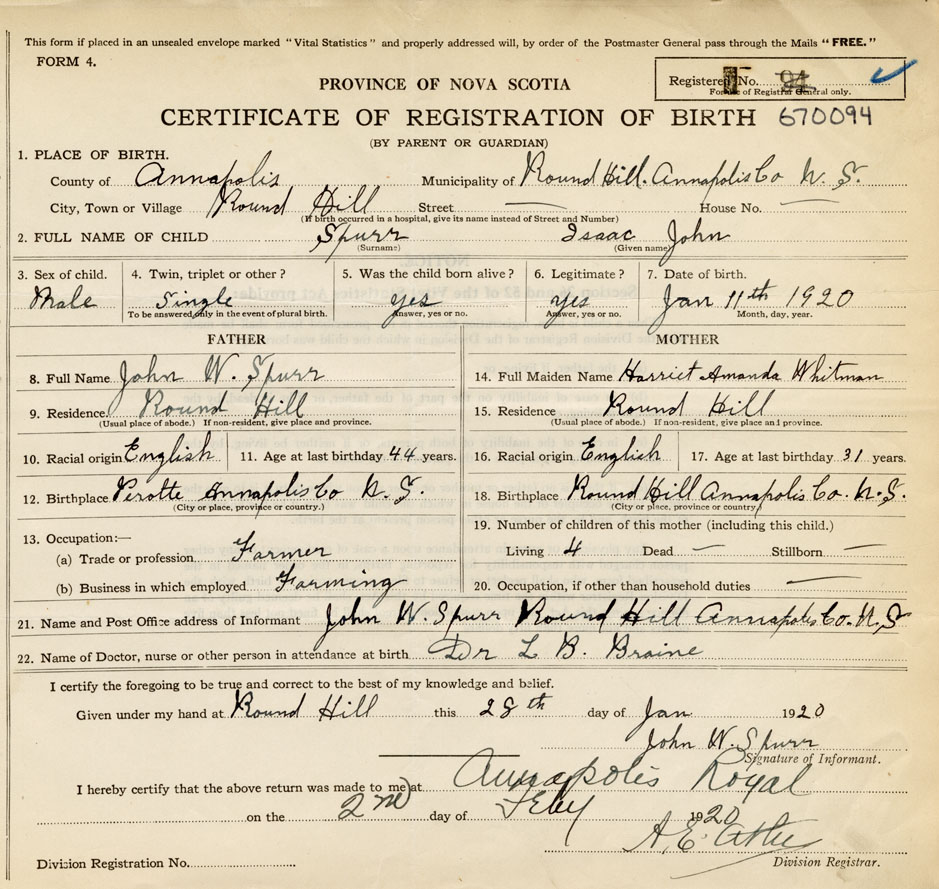 This form if placed in an unsealed envelope marked "Vital Statistics" and properly addressed will, by order of the Postmaster General pass through the Mails "FREE."
FORM 4.
PROVINCE OF NOVA SCOTIA
Registered No. 94
For use of Registrar General only.
CERTIFICATE OF REGISTRATION OF BIRTH 670094
(BY PARENT OR GUARDIAN)
1. PLACE OF BIRTH.
County of Annapolis Municipality of Round Hill. Annapolis Co N. S.
City, Town or Village Round Hill Street — House No. —
(If birth occurred in a hospital, give its name instead of Street and Number)
2. FULL NAME OF CHILD Spurr Isaac John
(Surname) (Given name)
3. Sex of child. 4. Twin, triplet or other? 5. Was the child born alive? 6. Legitimate? 7. Date of birth.
Male Single yes yes Jan 11th 1920
To be answered only in the event of plural birth. Answer, yes or no. Answer, yes or no. Month, day, year.
FATHER MOTHER
8. Full Name John W. Spurr 14. Full Maiden Name Harriet Amanda Whitman
9. Residence Round Hill 15. Residence Round Hill
(Usual place of abode.) If non-resident, give place and province. (Usual place of abode.) If non-resident, give place and province.
10. Racial origin English 11. Age at last birthday 44 years. 16. Racial origin English 17. Age at last birthday 31 years.
12. Birthplace Perotte Annapolis Co N. S. 18. Birthplace Round Hill Annapolis Co. N. S.
(City or place, province or country.) (City or place, province or country.)
13. Occupation:— 19. Number of children of this mother (including this child.)
(a) Trade or profession Farmer Living 4 Dead — Stillborn —
(b) Business in which employed Farming 20. Occupation, if other than household duties —
21. Name and Post Office address of Informant John W. Spurr Round Hill Annapolis Co. N. S
22. Name of Doctor, nurse or other person in attendance at birth Dr L B. Braine
I certify the foregoing to be true and correct to the best of my knowledge and belief.
Given under my hand at Round Hill this 28th day of Jan 1920
John W. Spurr
Signature of Informant.
I hereby certify that the above return was made to me at Annapolis Royal
on the 2nd day of Feby 1920
A. E.
Division Registration No. Division Registrar.